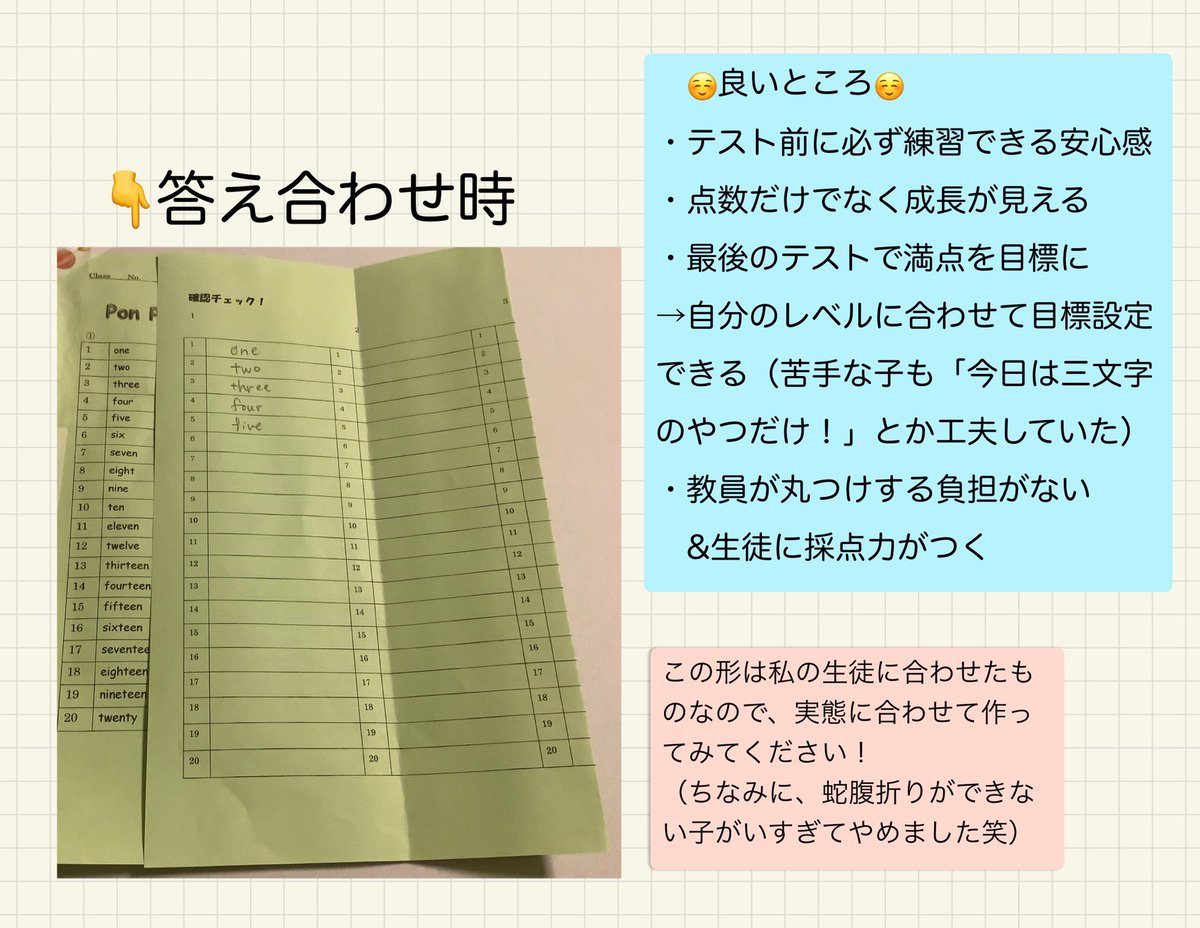 👇答え合わせ時
Class No.
Pon P
①
1 one
2 two
3 three
4 four
5 five
6 six
7 seven
8 eight
9 nine
10 ten
11 eleven
12 twelve
13 thirteen
14 fourteen
15 fifteen
16 sixteen
17 seventee
18 eighteen
19 nineteen
20 twenty
確認チェック！
1 2 3
1 one 1 1
2 two 2 2
3 three 3 3
4 four 4 4
5 five 5 5
6 6 6
7 7 7
8 8 8
9 9 9
10 10 10
11 11 11
12 12 12
13 13 13
14 14 14
15 15 15
16 16 16
17 17 17
18 18 18
19 19 19
20 20 20
☺️良いところ☺️
・テスト前に必ず練習できる安心感
・点数だけでなく成長が見える
・最後のテストで満点を目標に
→自分のレベルに合わせて目標設定
できる（苦手な子も「今日は三文字
のやつだけ！」とか工夫していた）
・教員が丸つけする負担がない
&生徒に採点力がつく
この形は私の生徒に合わせたも
のなので、実態に合わせて作っ
てみてください！
（ちなみに、蛇腹折りができな
い子がいすぎてやめました笑）